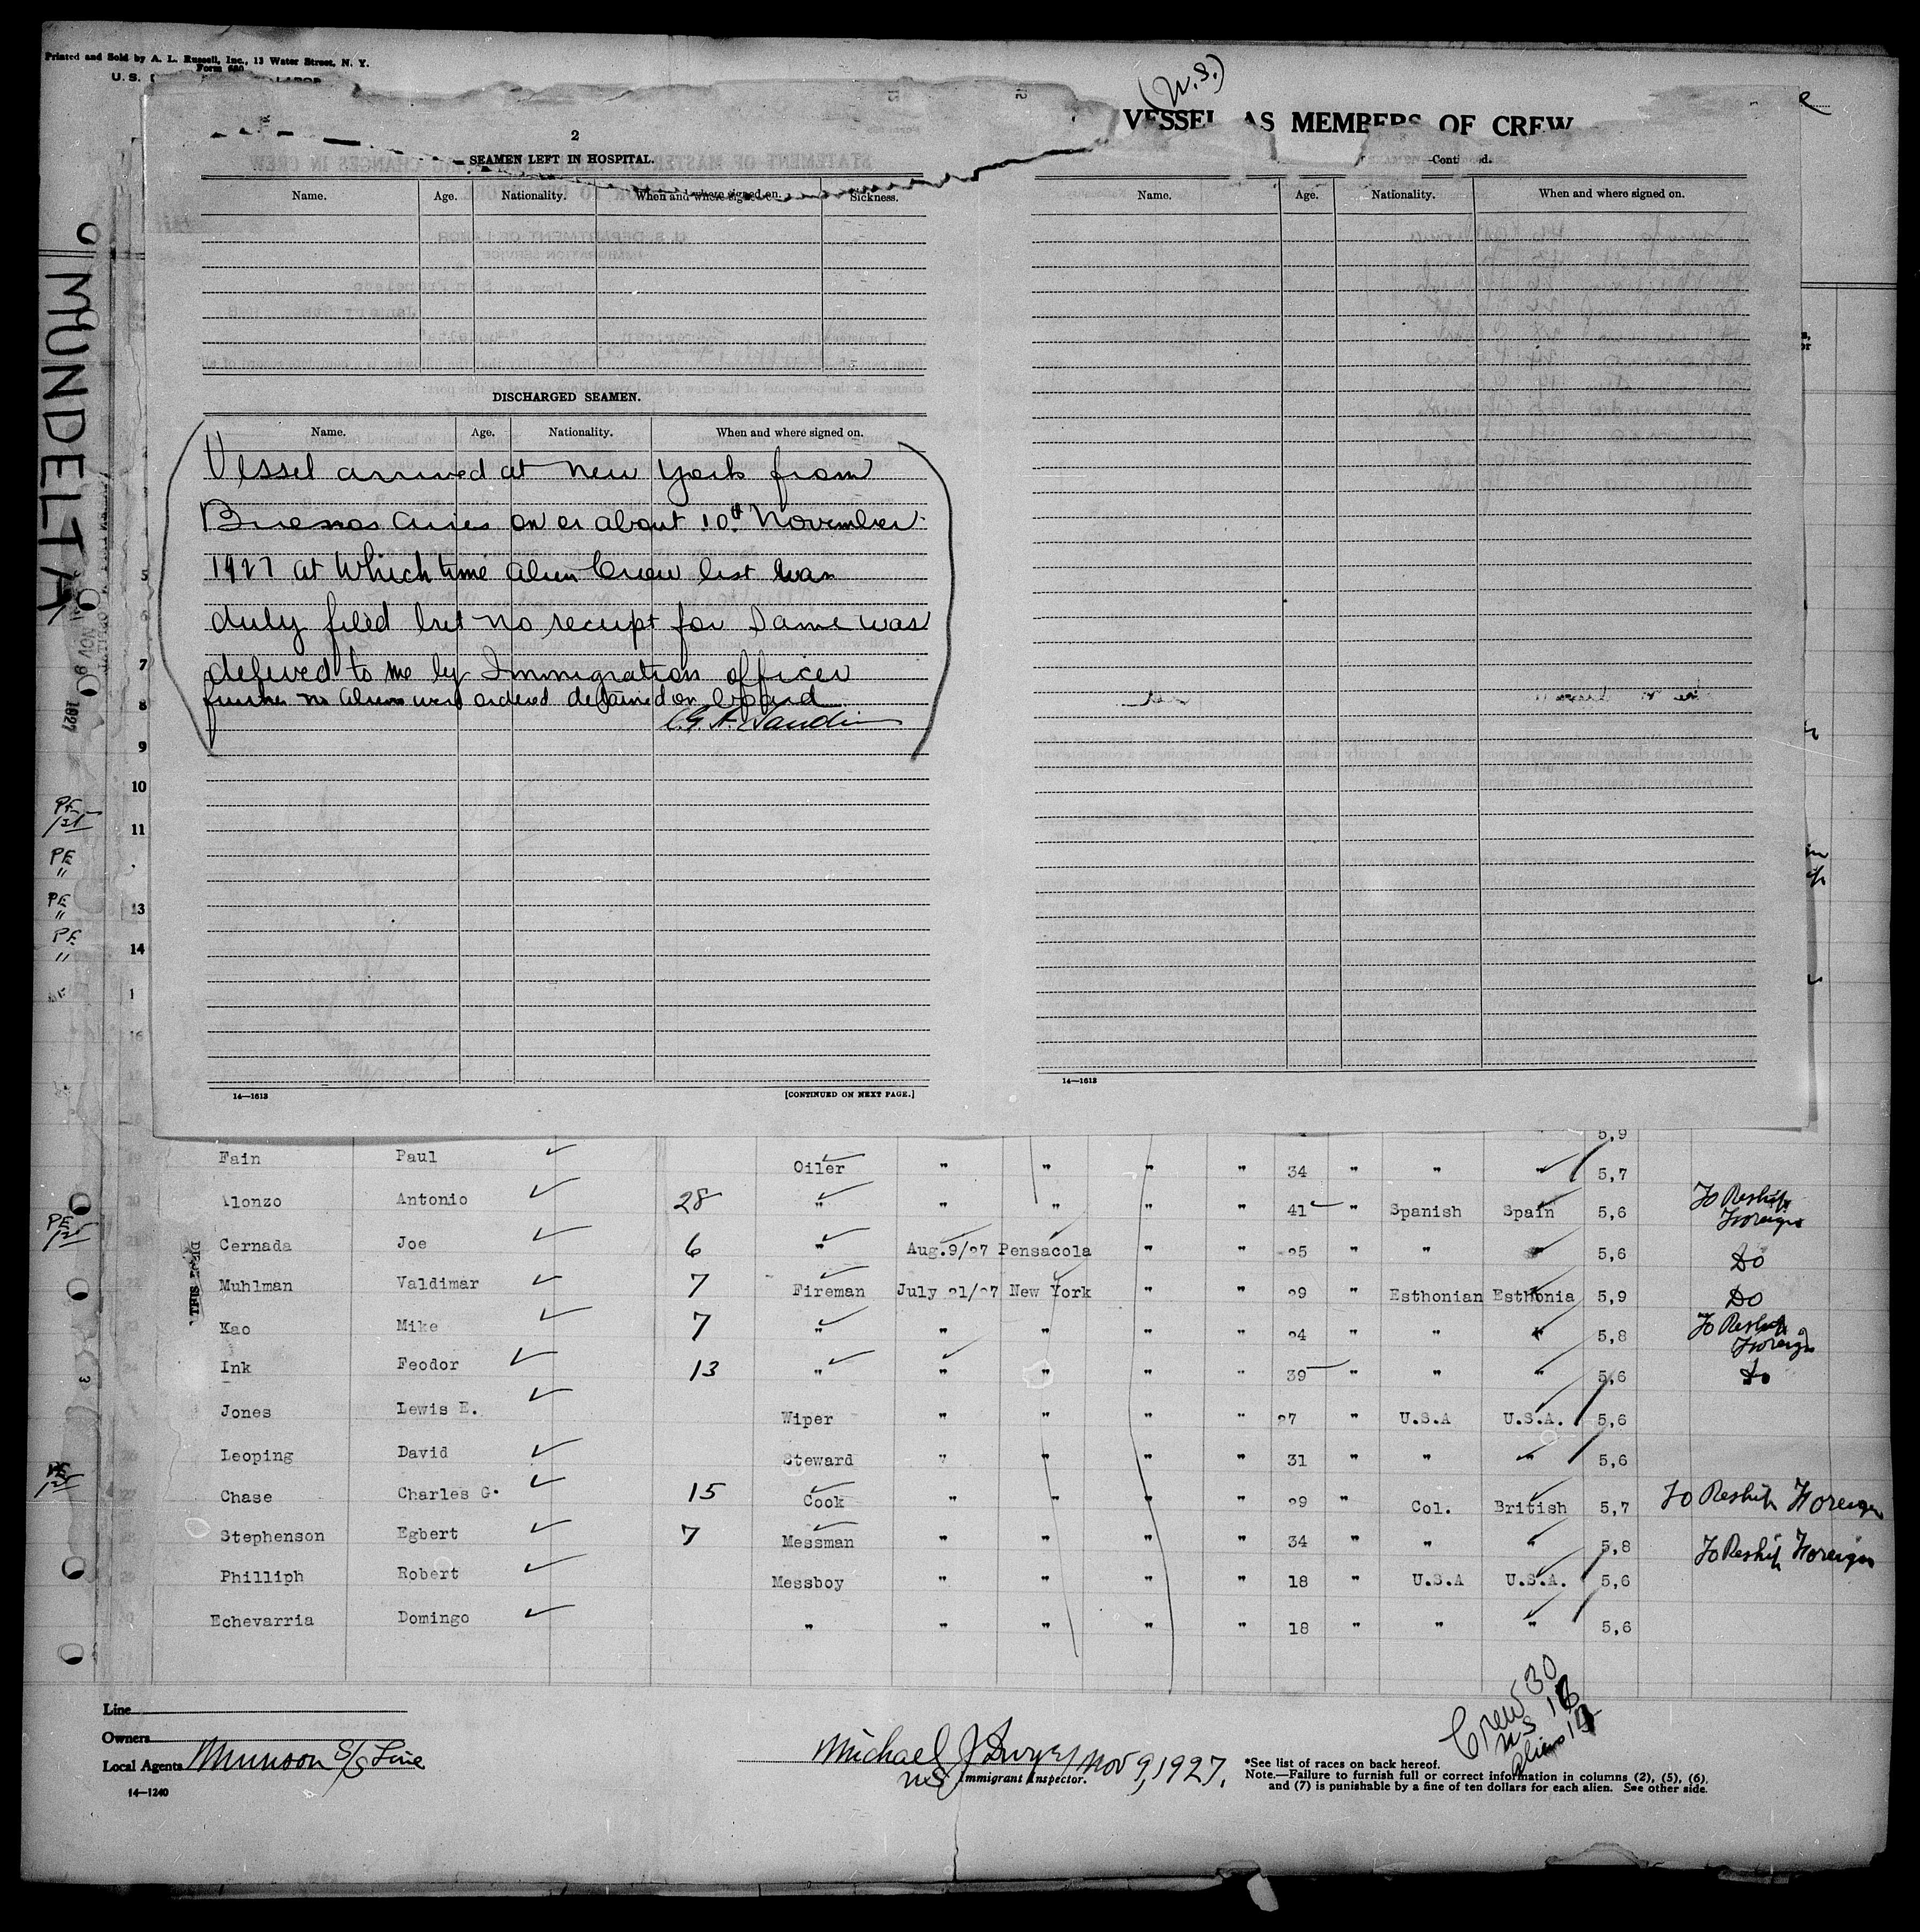 Printed and Sold by A. L. Russell, Inc., 13 Water Street, N. Y.
Form 680
U.S.
(U.S.)
VESSEL AS MEMBERS OF CREW
MUNDELTA
NOV 9 1927
2
SEAMEN LEFT IN HOSPITAL.
Name. Age. Nationality. When and where signed on. Sickness.
DISCHARGED SEAMEN.
Name. Age. Nationality. When and where signed on.
Vessel arrived at New York from
Buenos Aires on or about 10th November
1927 at Which time Alien Crew list was
duly filed but no receipt for Same was
delivered to me by Immigration officer
further no Aliens were ordered detained on board
14—1613 [CONTINUED ON NEXT PAGE.]
—Continued.
Name. Age. Nationality. When and where signed on.
14—1613
5
6
7
8
9
10
11
13
14
16
PE
PE "
PE "
PE "
5,9
19 Fain Paul Oiler " " " " 34 " " " 5,7
20 Alonzo Antonio 28 " " " " " 41 " Spanish Spain 5,6 To Reship Foreign
21 Cernada Joe 6 " Aug.9/27 Pensacola " " 25 " " " 5,6 Do
22 Muhlman Valdimar 7 Fireman July 21/27 New York " " 29 " Esthonian Esthonia 5,9 Do
23 Kao Mike 7 " " " " " 24 " " " 5,8 To Reship Foreign
24 Ink Feodor 13 " " " " " 39 " " " 5,6 Do
Jones Lewis E. Wiper " " " " 27 " U.S.A U.S.A. 5,6
26 Leoping David Steward " " " " 31 " " " 5,6
27 Chase Charles G. 15 Cook " " " " 29 " Col. British 5,7 To Reship Foreign
28 Stephenson Egbert 7 Messman " " " " 34 " " " 5,8 To Reship Foreign
29 Philliph Robert Messboy " " " " 18 " U.S.A U.S.A. 5,6
30 Echevarria Domingo " " " " " 18 " " " 5,6
Crew 30
US 16
Aliens 14
Line
Owners
Local Agents Munson S/S Line
14—1240
Michael J Dwyer Nov 9, 1927.
Immigrant Inspector.
*See list of races on back hereof.
Note.—Failure to furnish full or correct information in columns (2), (5), (6),
and (7) is punishable by a fine of ten dollars for each alien. See other side.